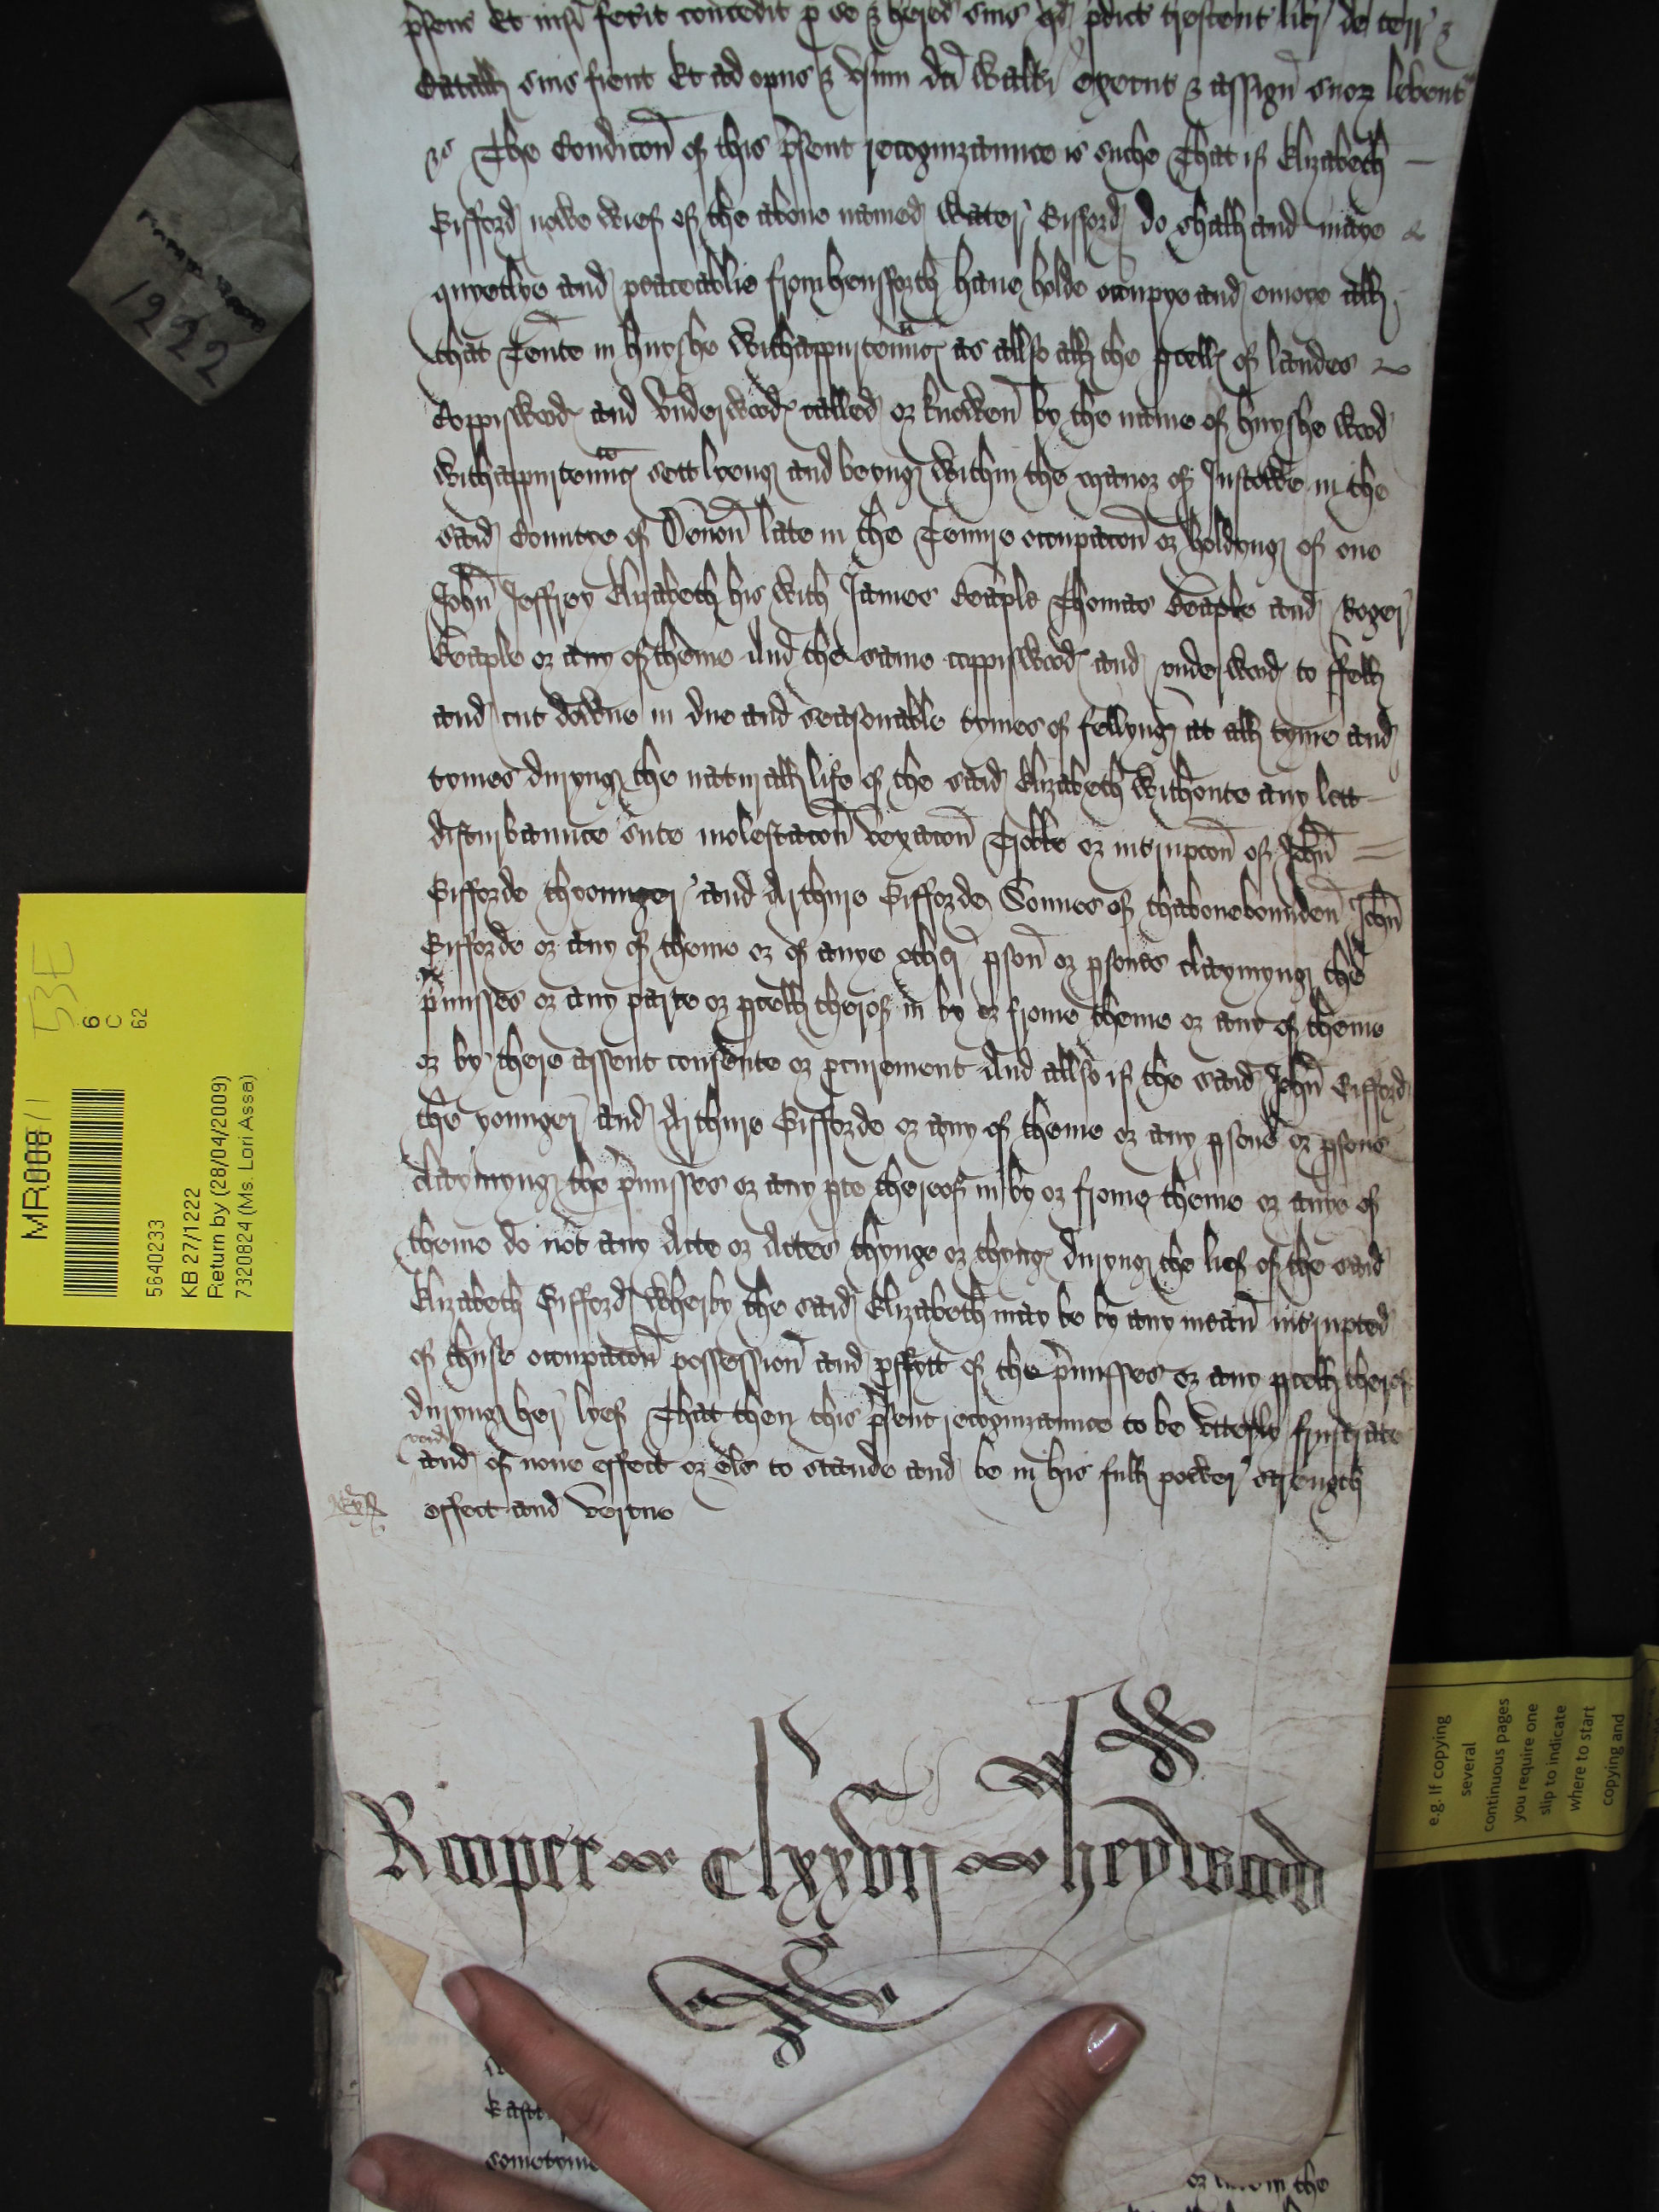 p̄sens Et nisi fec̄it concedit p se & hered suis qd p̄dict trescent libr de terr &
Catall suis fient Et ad opus & usum dc̄i Walt̄i execut & assign̄ suor levent
&c The Condic̄on of this p̄sent recognizaunce is suche That if Elizabeth
Gifford nowe wief of the above named Water Gifford do shall and maye
quyetlye and peaceablie from hensforth have holde occupye and enioye all
that Tente in huyshe with appurtennc̄ as allso all the p̄cell of landes
Coppiswood and Underwood called or knowen by the name of huyshe wood
with appurtennc̄ sett lyeng and beyng within the manor of Instowe in the
said Countye of Devon̄ late in the Tenure occupac̄on or holdyng of one
John̄ Jeffrey Elizabeth his wieff James Beaple Thomas Beaple and Roger
Beaple or any of theme And the same coppiswood and underwood to ffell
and cut downe in due and seasonable tymes of fellyng at all tyme and
tymes duryng the naturall life of the said Elizabeth withoute any lett
disturbaunce sute molestac̄on vexac̄on Troble or int̄rupc̄on of John̄
Gifforde the younger and Arthure Gifforde Sonnes of thabovebounden John̄
Gifforde or any of theme or of anye other pson or psones claymyng the
p̄misses or any parte or pcell therof in by or frome theme or any of theme
or by there assent consente or pcurement And allso if the said John̄ Gifford
the younger and Arthure Gifforde or any of theme or any psone or psons
claymyng the p̄misses or any pte thereof in by or frome theme or anye of
theme do not any Acte or Actes thynge or thyngs duryng the lief of the said
Elizabeth Gifford wherby the said Elizabeth may be by any mean int̄rupted
of thuse occupac̄on possession and pffytt of the p̄misses or any pcell therof
duryng her lyef That then this p̄sent recognizaunce to be utterly frustrate
void
and of none effect or els to stande and be in his full power strength
effect and vertue
Rooper clxxvij heywood
Kastt
sometyme
in the
1222
53E
6
C
62
MR008
5640233
KB 27/1222
Return by (28/04/2009)
7320824 (Ms. Lori Assa)
e.g. If copying
several
continuous pages
you require one
slip to indicate
where to start
copying and